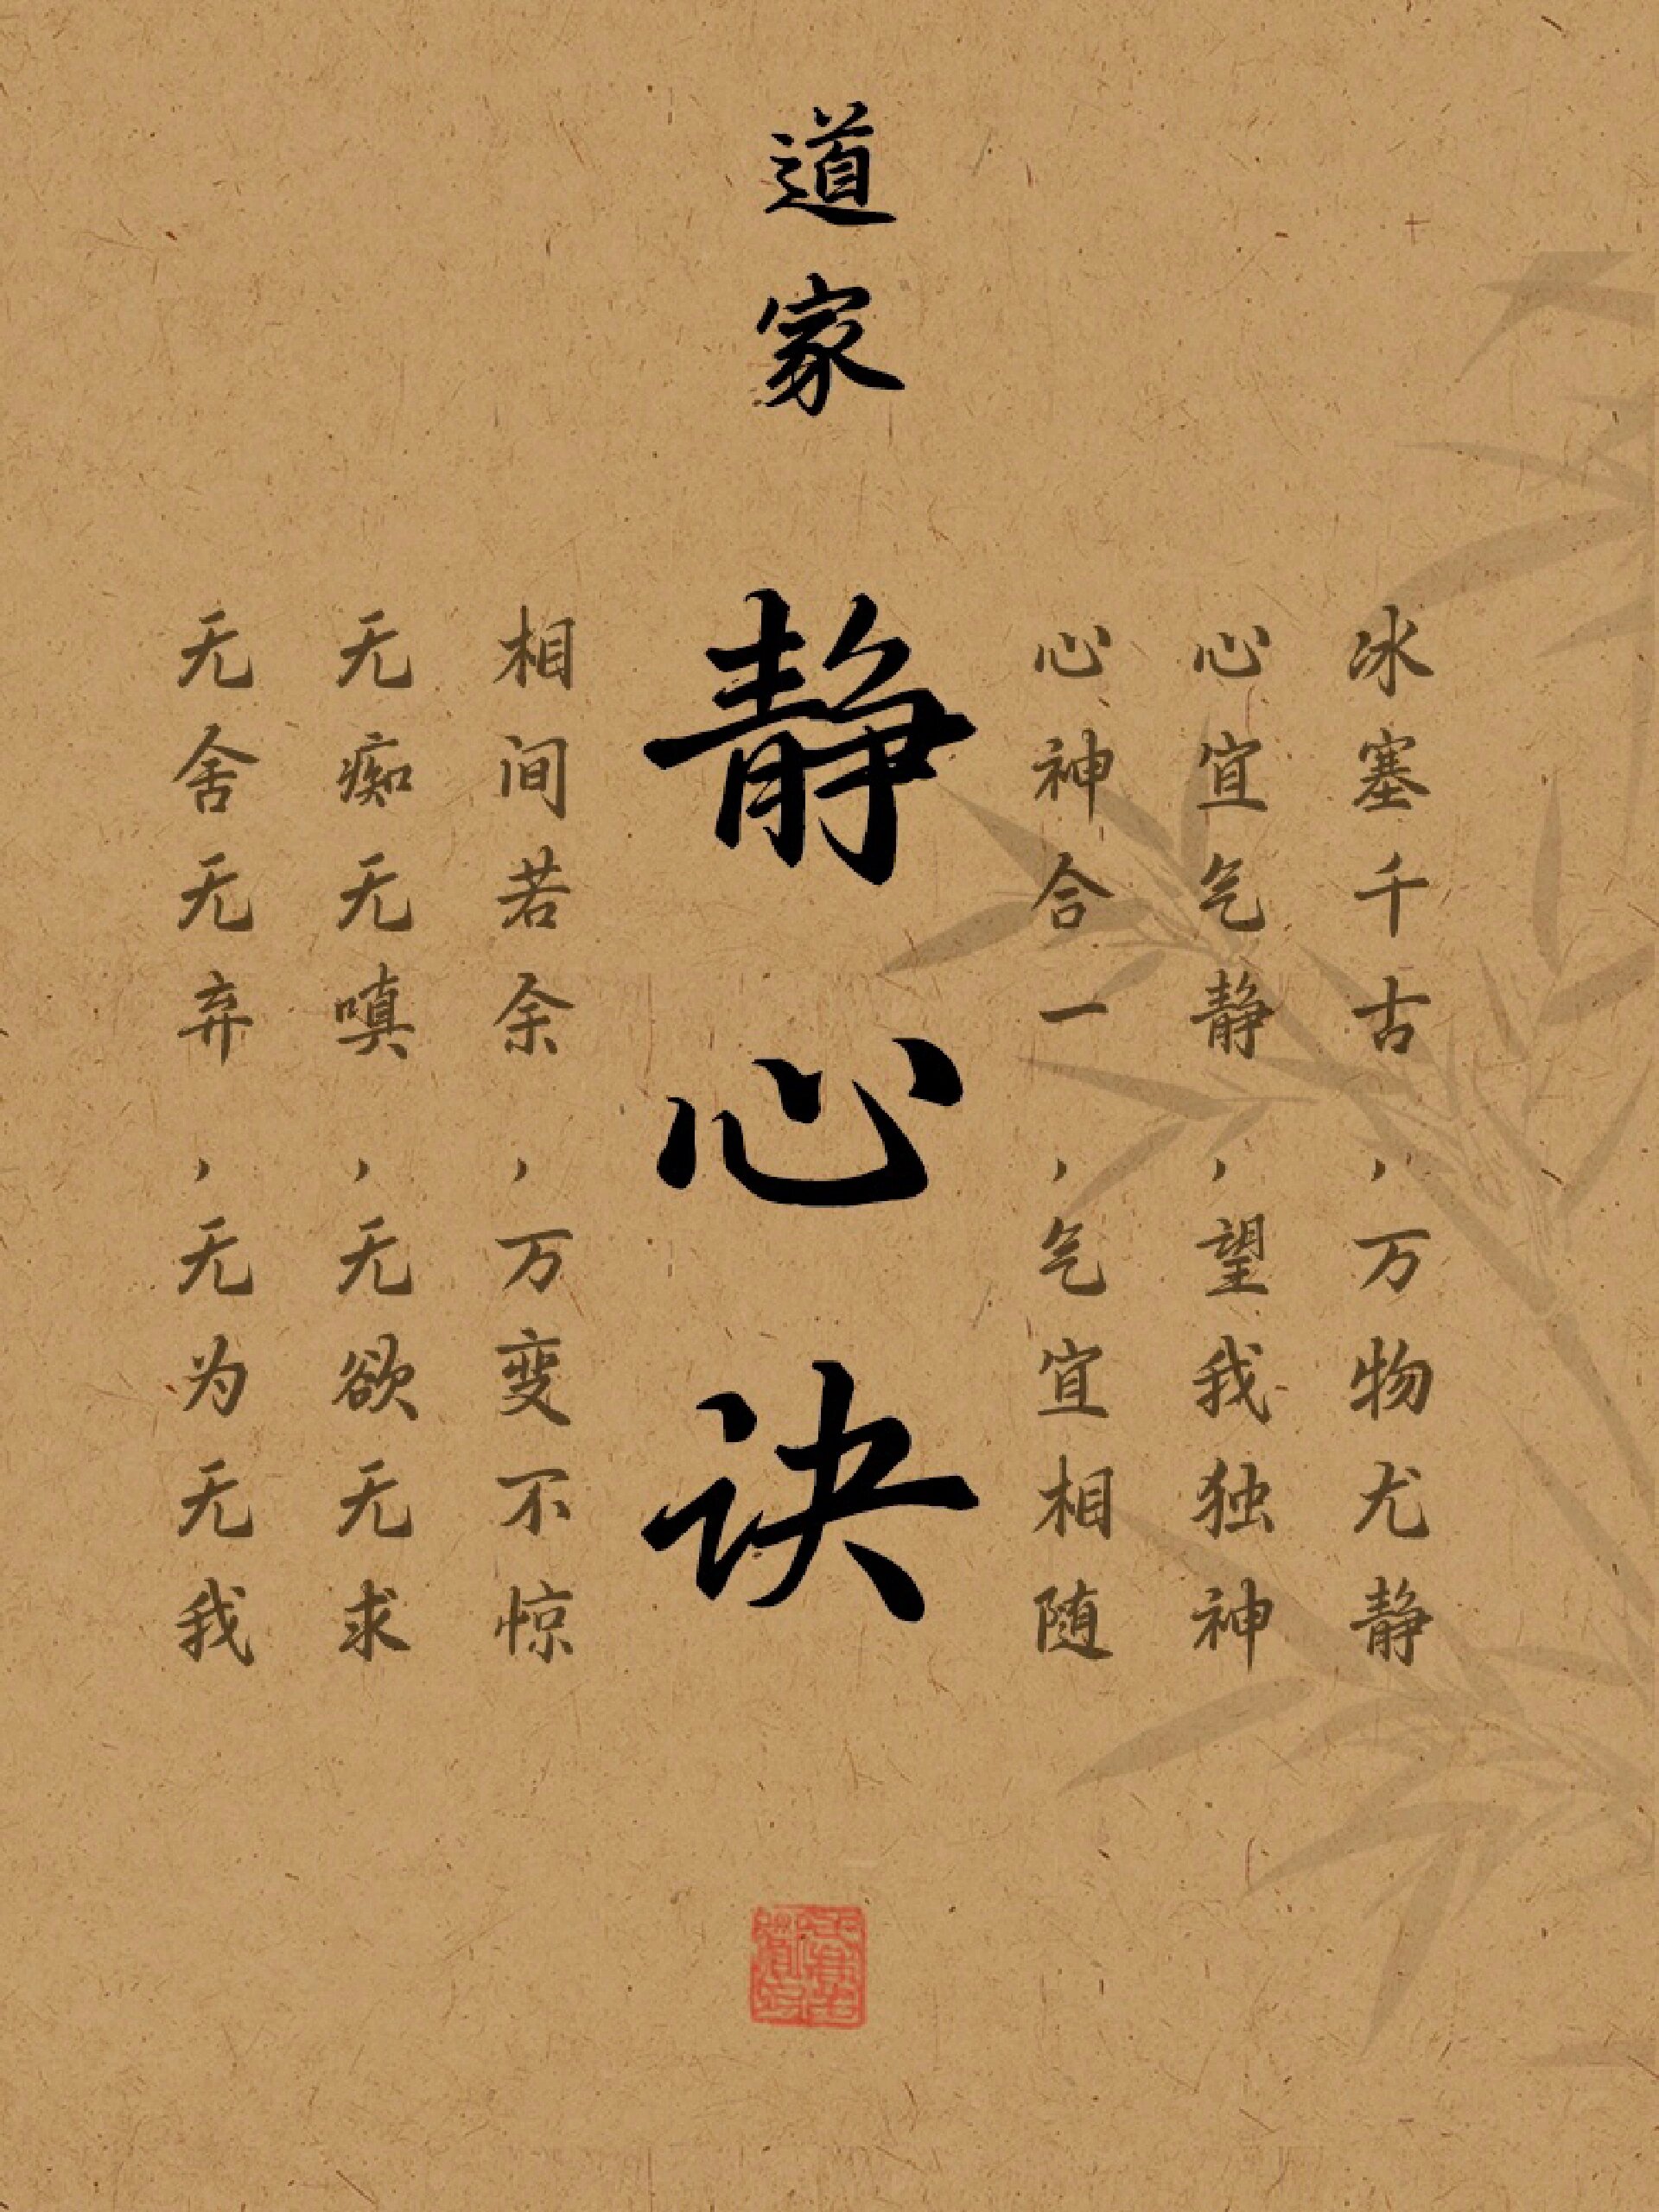 道家
静心诀
冰塞千古,万物尤静
心宜气静,望我独神
心神合一,气宜相随
相间若余,万变不惊
无痴无嗔,无欲无求
无舍无弃,无为无我